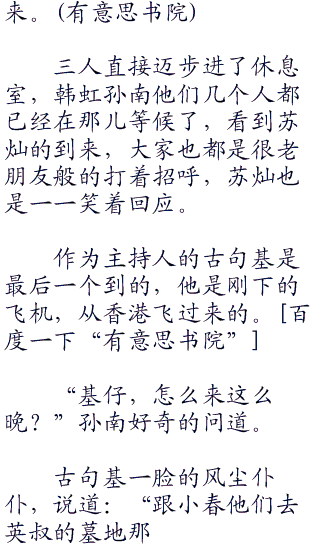 来。(有意思书院)
三人直接迈步进了休息
室，韩虹孙南他们几个人都
已经在那儿等候了，看到苏
灿的到来，大家也都是很老
朋友般的打着招呼，苏灿也
是一一笑着回应。
作为主持人的古句基是
最后一个到的，他是刚下的
飞机，从香港飞过来的。[百
度一下“有意思书院”]
“基仔，怎么来这么
晚？”孙南好奇的问道。
古句基一脸的风尘仆
仆，说道：“跟小春他们去
英叔的墓地那